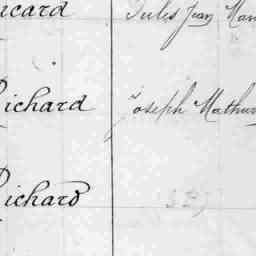 Jules Jean Mar
Richard Joseph Mathur
Richard